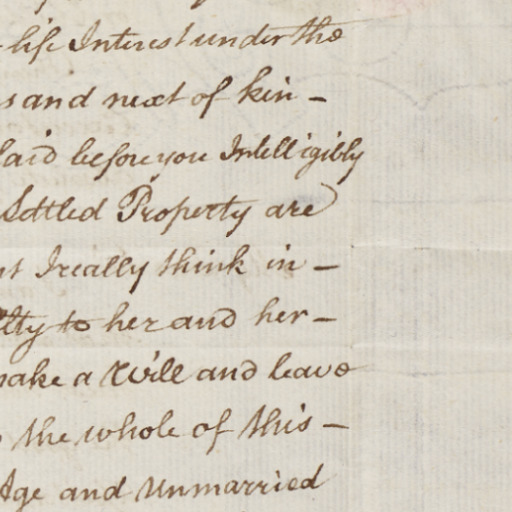 life Interest under the
s and next of kin -
laid before you Intelligibly
Settled Property are
I really think in -
lty to her and her -
make a Will and leave
the whole of this -
Age and Unmarried